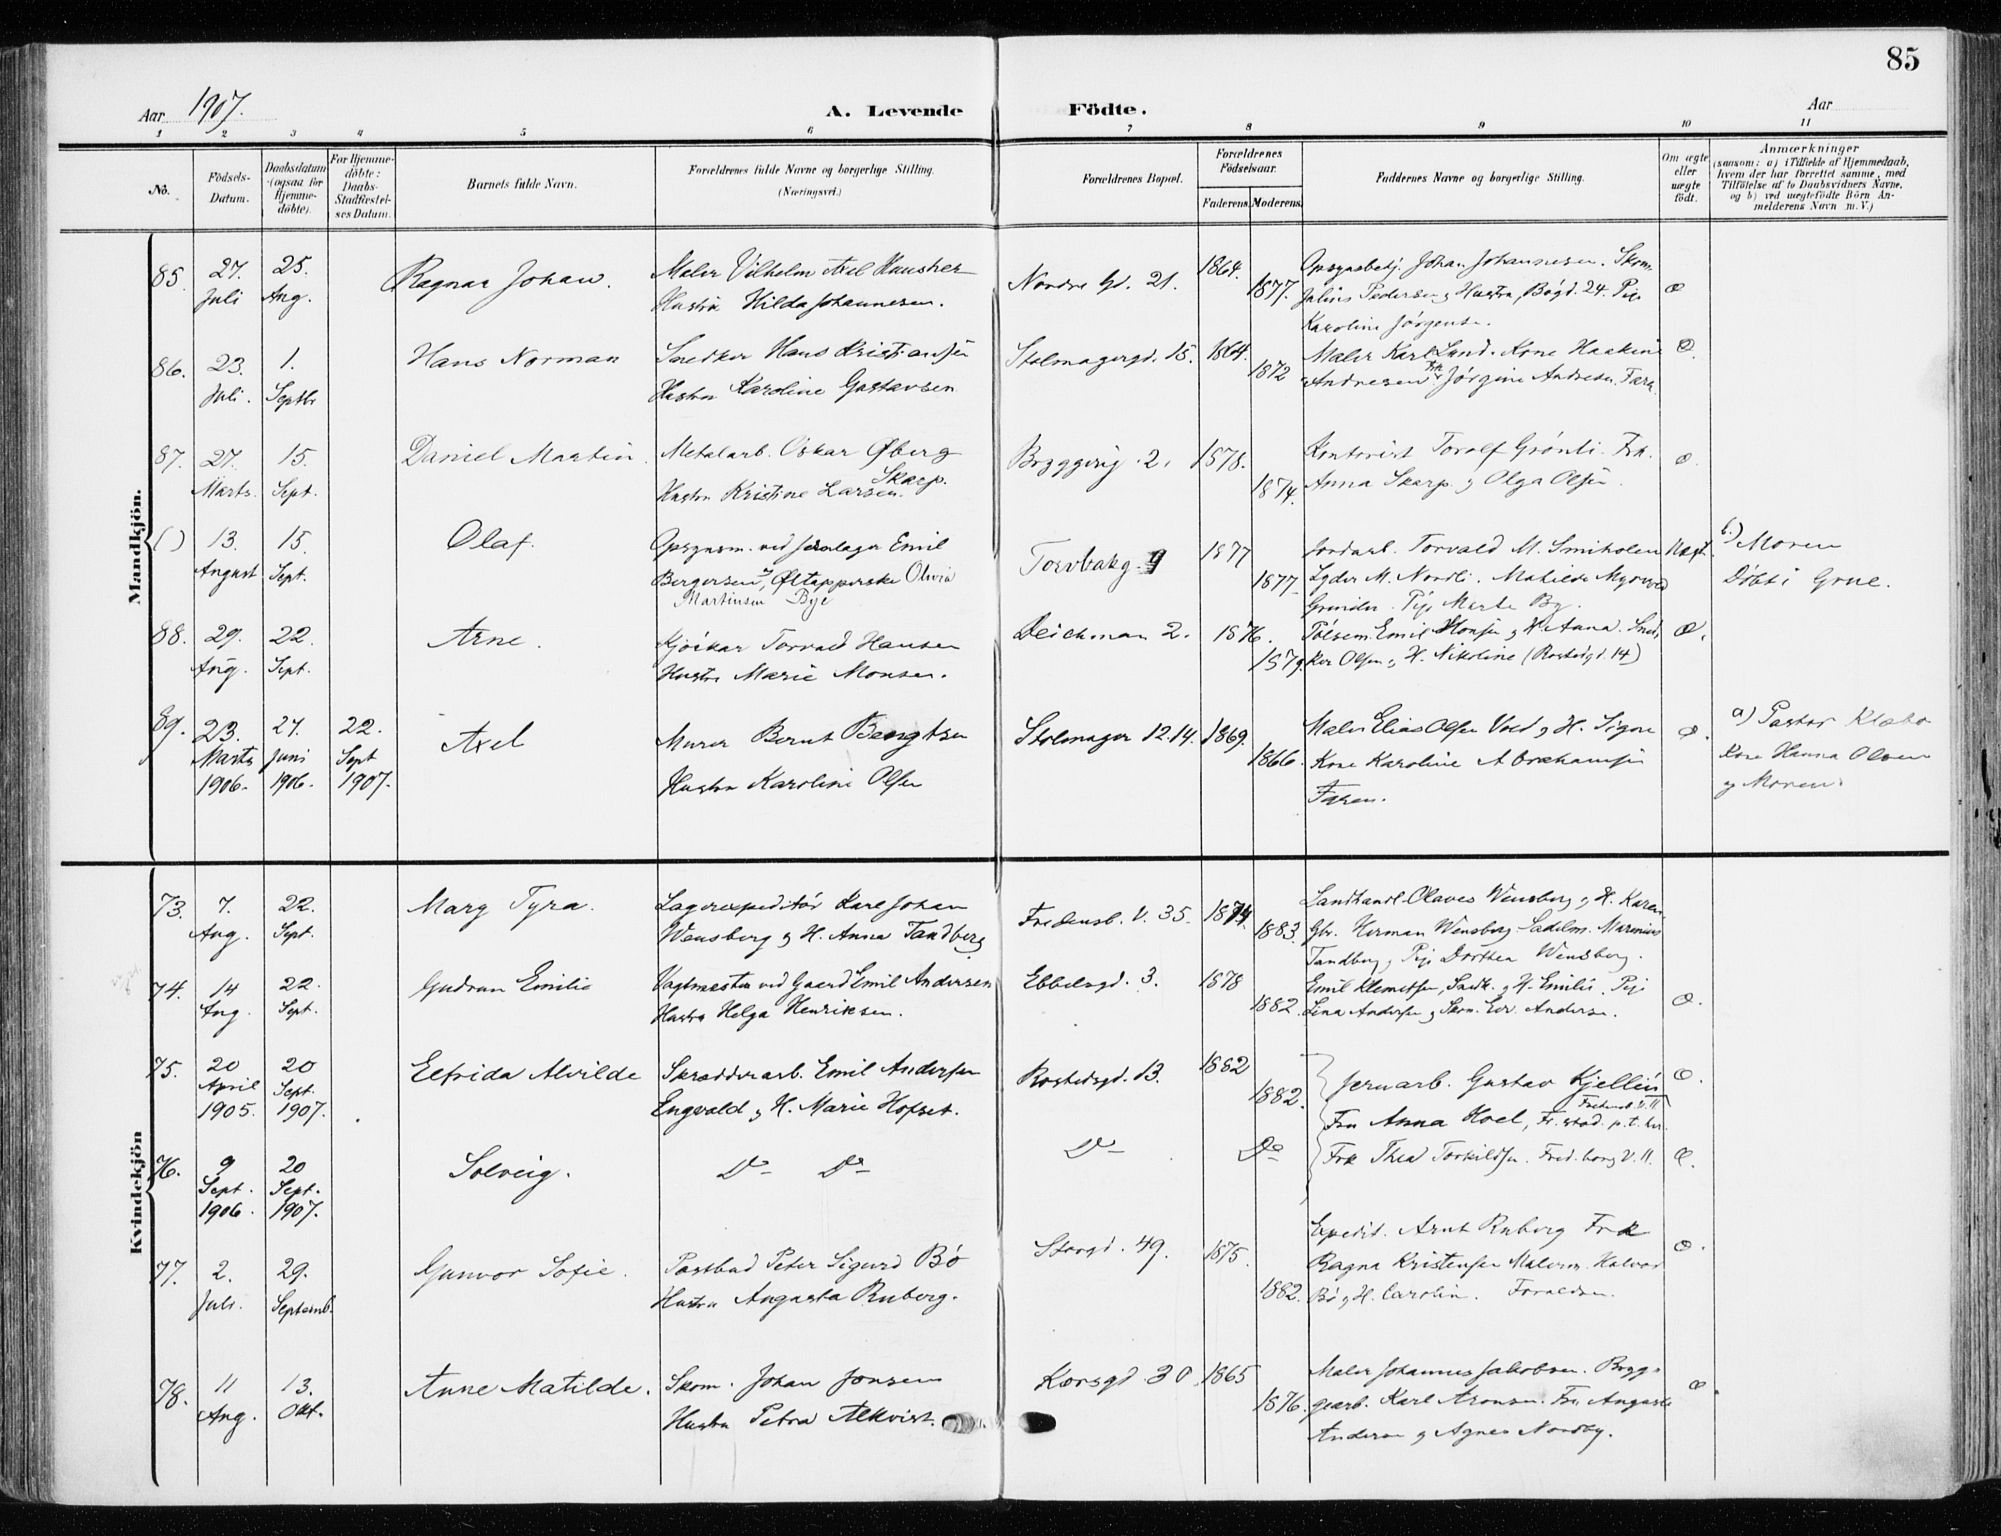 85
Aar 1907.
A. Levende Födte.
Aar
1 2 3 4 5 6 7 8 9 10 11
No.
Födsels-Datum.
Daabsdatum (ogsaa for Hjemmedöbte).
For Hjemmedöbte: Daabs-Stadfæstelses Datum.
Barnets fulde Navn.
Forældrenes fulde Navne og borgerlige Stilling. (Næringsvei.)
Forældrenes Bopæl.
Forældrenes Födselsaar.
Faderens. Moderens.
Faddernes Navne og borgerlige Stilling.
Om ægte eller uægte födt.
Anmærkninger
(saasom: a) i Tilfælde af Hjemmedaab, hvem der har forrettet samme, med Tilföielse af to Daabsvidners Navne, og b) ved uægtefödte Börn Anmelderens Navn m. V.)
Mandkjön.
85. 27. Juli 25. Aug. Ragnar Johan.
Maler Vilhelm Axel
Hustru Hilda Johannesen.
Nordre Gd. 21. 1864. 1877.
Johan Johannesen. Skom.
Julius Pedersen og Hustru, Bogd. 24. Pige
Karoline Jørgensen.
æ
86. 23. Juli. 1. Septbr Hans Norman
Snedker Hans Kristiansen
Hustru Karoline Gustavsen
Stolmagergd. 15. 1864. 1872
Maler Karl Lund. Kone Haakine
Andresen Frk Jørgine Andresen.
æ
87. 27. Marts. 15. Sept. Daniel Martin.
Metalarb. Oskar Øberg
Skarp.
Hustru Kristine Larsen.
2. 1878. 1874.
Kontorist Torolf Grønli. Frk.
Anna Skarp og Olga Olsen.
æ
( ) 13. August 15. Sept. Olaf.
Opsynsm. ved Emil
Bergersen, Øltapperske Olivia
Martinsen Bye
Torvbakg. 9 1877 1877
Jordarb. Torvald M.
Lyder M. Nordli. Matilde
Pige Marte By.
Uægt.
b.) Moren
Døbt i Grue.
88. 29. Aug. 22. Sept. Arne.
Torvald Hansen
Hustru Marie Monsen.
Deichman 2. 1876. 1879.
Emil Hansen og H. Anna. Sned-
ker Olsen og H. Nikoline (Rostedgd. 14)
æ.
89. 23. Marts 1906. 27. Juni 1906. 22. Sept 1907. Axel
Murer Bernt Bengtsen
Hustru Karoline Olsen
Stolmager 12.14. 1869. 1866.
Maler Elias Olsen Vold og H. Signe
Kone Karoline Abrahamsen
Faren.
æ.
a) Pastor Klæbo
Kone Hanna Olsen
og Moren.
Kvindekjön
73. 7. Aug. 22. Sept. Mary Tyra.
Lagerexpeditør Karl Johan
Wensberg og H. Anna Tandberg
Fredensb. V. 35. 1874. 1883.
Landhandl. Olaves Wensberg og H. Karen
Gbr. Herman Wensberg Sadelm. Marenius
Tandberg, Pige Dorthea Wensberg.
74. 14 Aug. 22. Sept. Gudrun Emilie
Vagtmester ved Gaard Emil Andersen
Hustru Helga Henriksen.
Ebbelsgd. 3. 1878 1882.
Emil Klemetsen, Snedk. og H. Emilie. Pige
Lina Andersen og Skom. Edv. Andersen.
æ.
75. 20 April 1905. 20 Sept. 1907. Elfrida Alvilde
Skrædderarb. Emil Andersen
Engvald og H. Marie Hofset.
Rostedsgd. 13. 1882 1882.
Jernarb. Gustav Kjellin
Fredensb. V. 11
Fru Anna Hoel, Fr.stad. p.t. her.
æ.
76. 9 Sept. 1906. 20 Sept. 1907. Solveig.
Do Do
Do Do
Frk Thea Torkildsen. Fred.borg V. 11.
æ.
77. 2. Juli. 29. Septemb. Gunvor Sofie.
Postbud Peter Sigurd Bø
Hustru Augusta Ruberg.
Storgd. 49. 1875. 1882.
Expedit. Arnt Ruberg Frk
Ragna Kristensen Malerm. Halvor
Bø og H. Carolin. Forældren.
æ.
78. 11 Aug. 13. Okt. Anne Matilde.
Skom. Johan Jonsen
Hustru Petra Alkvist.
Korsgd 30. 1865 1876.
Maler Johannes Jakobsen. Brygg-
gearb. Karl Aronsen. Fru Augusta
Andersen og Agnes Nordby.
æ.